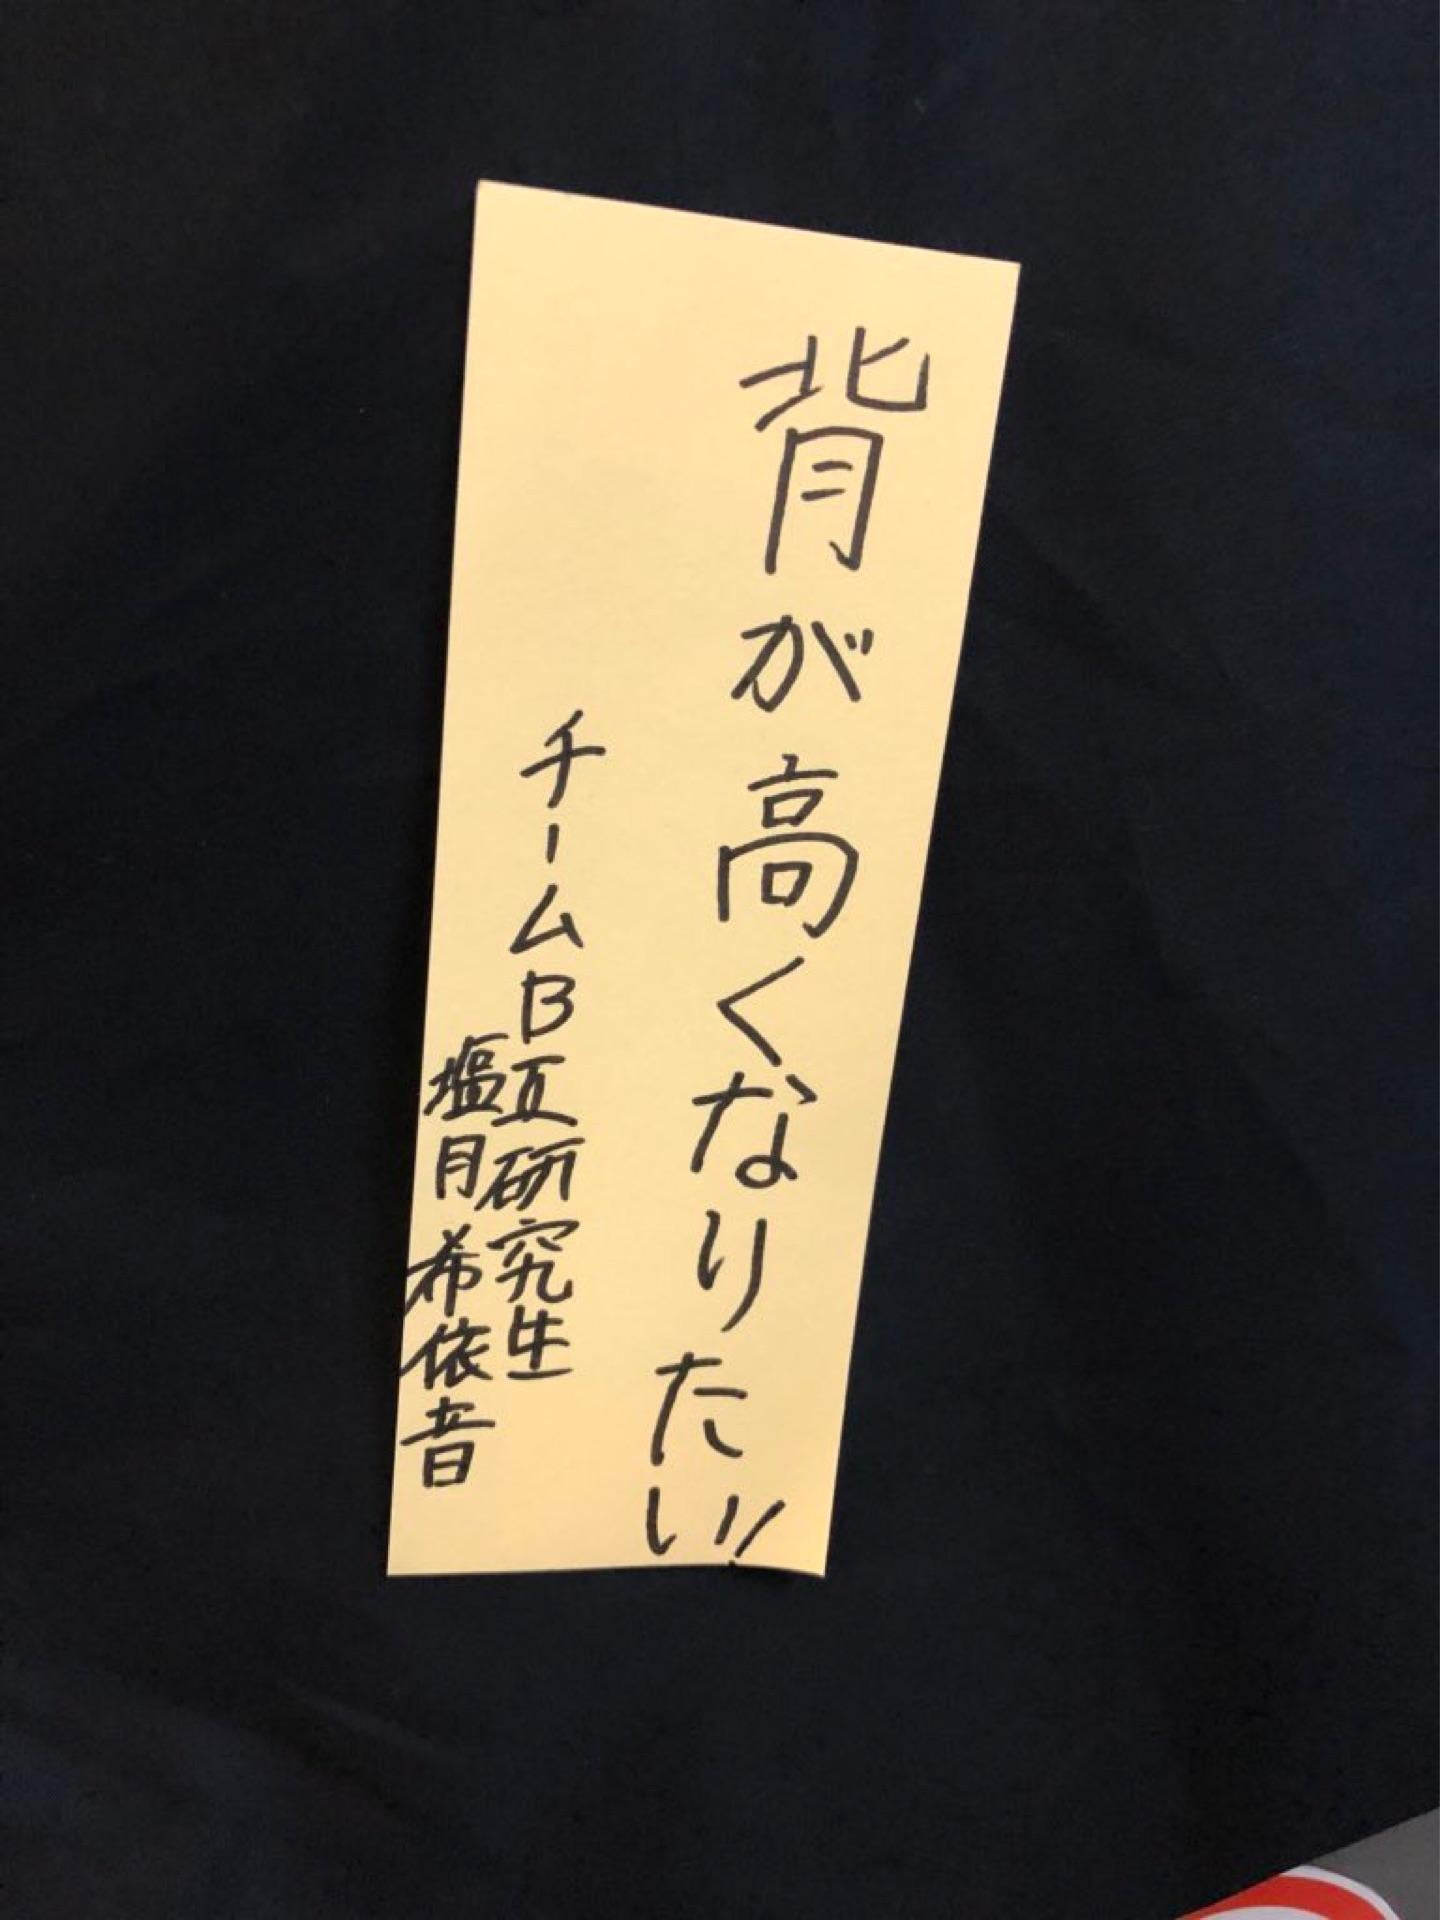 背が高くなりたい!!
チームBⅡ研究生
塩月希依音